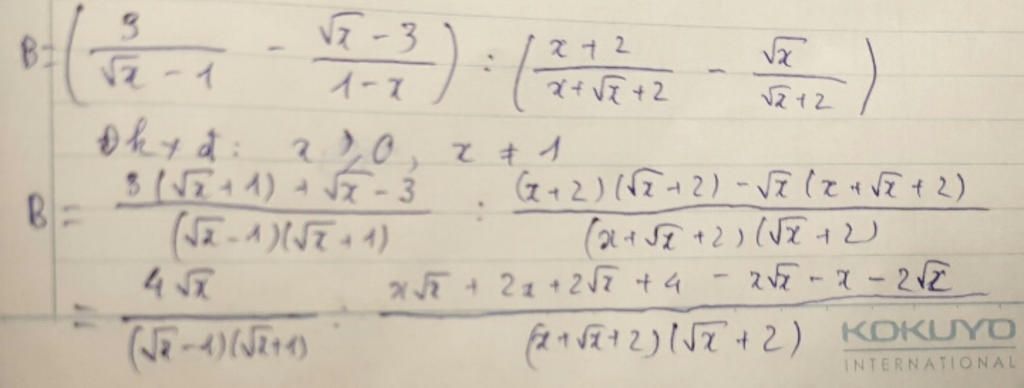 B = ( 3/(√x - 1) - (√x - 3)/(1 - x) ) : ( (x + 2)/(x + √x + 2) - √x/(√x + 2) )
Đkxđ: x ≥ 0, x ≠ 1
B = (3(√x + 1) + √x - 3)/((√x - 1)(√x + 1)) : ((x + 2)(√x + 2) - √x(x + √x + 2))/((x + √x + 2)(√x + 2))
= 4√x/((√x - 1)(√x + 1)) : (x√x + 2x + 2√x + 4 - x√x - x - 2√x)/((x + √x + 2)(√x + 2))
KOKUYO
INTERNATIONAL